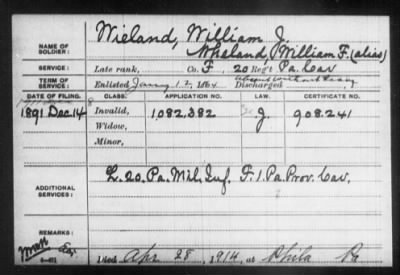 Wieland, William J.
NAME OF SOLDIER: Wheland, William F. (alias)
SERVICE: Late rank, Co. F, 20 Reg't Pa. Cav
TERM OF SERVICE: Enlisted Jany 12, 1864 Discharged
DATE OF FILING. CLASS. APPLICATION NO. LAW. CERTIFICATE NO.
1891 Dec. 14 Invalid, 1,082,382 J. 908.241
Widow,
Minor,
ADDITIONAL SERVICES: L. 20. Pa. Mil. Inf. F. 1. Pa. Prov. Cav.
REMARKS:
Died Apr 28, 1914, at Phila Pa